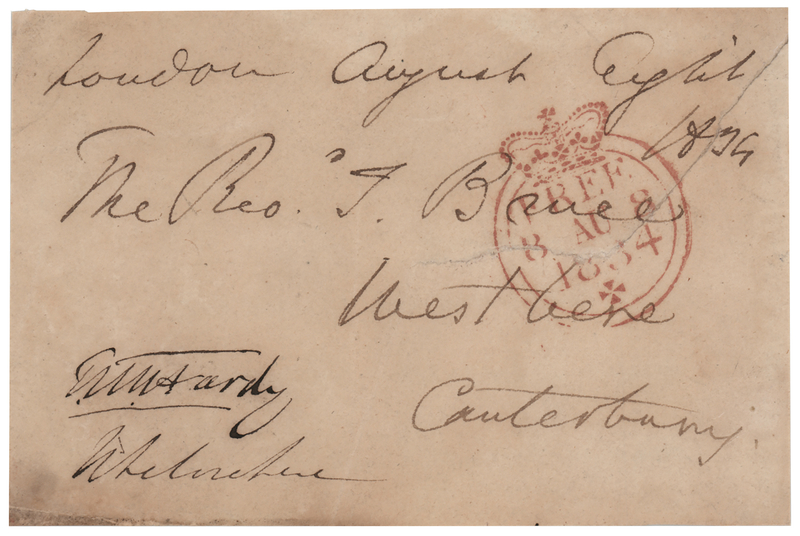 London August Eight
1834
The Revd. T. Bruce
FREE
8 AU 8
1834
Westbere
T.M. Hardy
Canterbury.